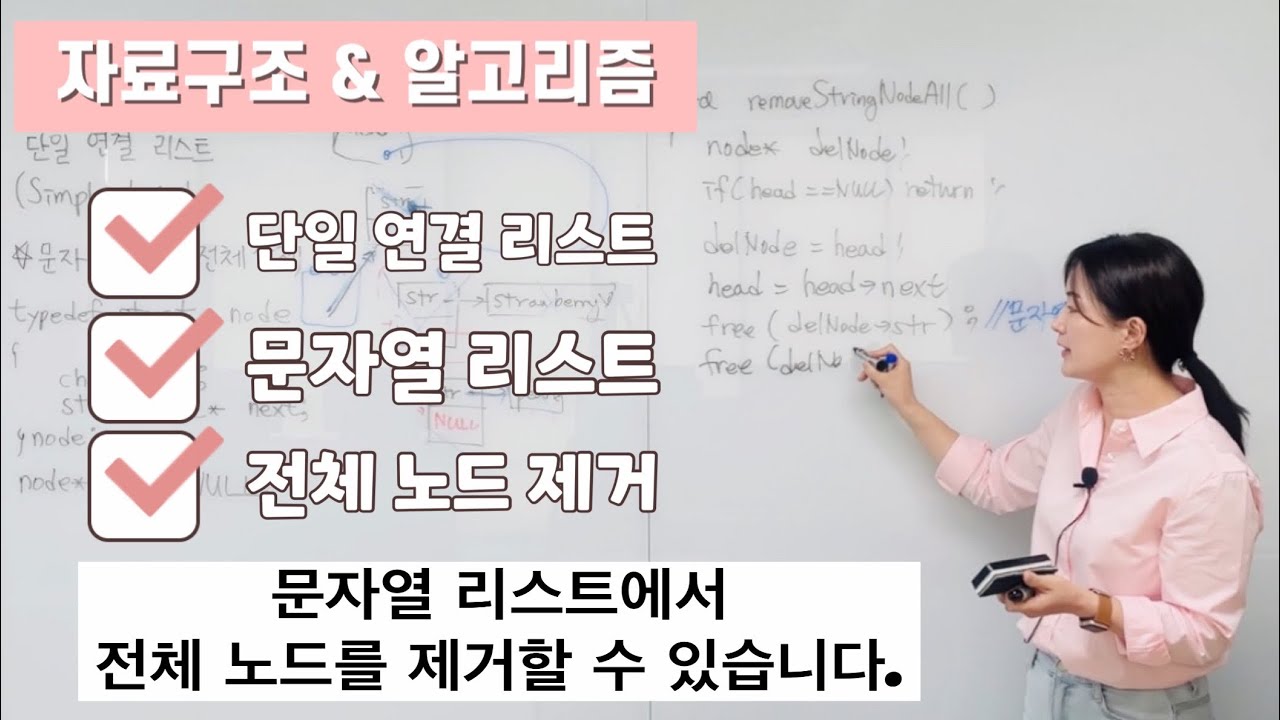 자료구조 & 알고리즘
단일 연결 리스트
문자열 리스트
전체 노드 제거
문자열 리스트에서
전체 노드를 제거할 수 있습니다.
단일 연결 리스트
(Simp
☆문자 전체
typedef node
{
next;
node*
str
strawberry
NULL
removeStringNodeAll( )
node* delNode;
if(head ==NULL) return ;
delNode = head;
head = head→next
free ( delNode→str) ; //문자
free (delNo